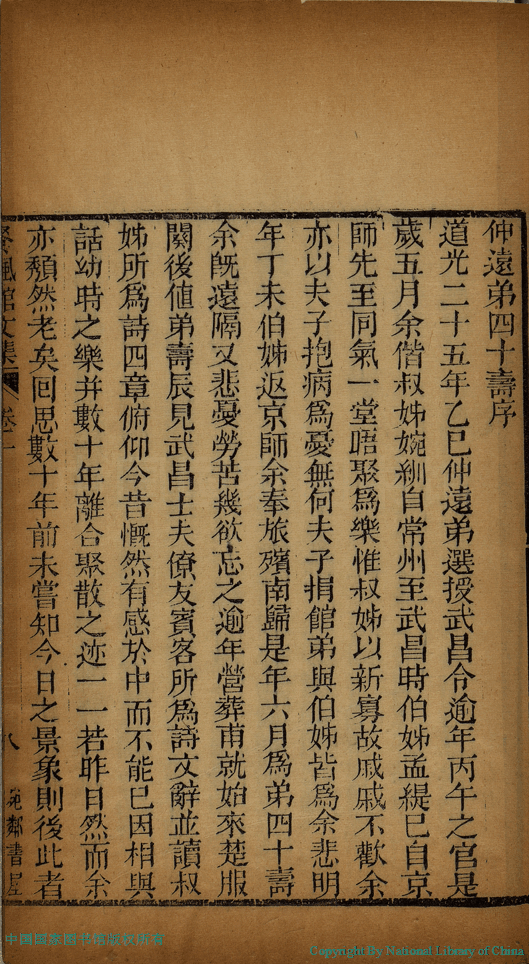 仲遠弟四十壽序
道光二十五年乙巳仲遠弟選授武昌令逾年丙午之官是
歲五月余偕叔姊婉紃自常州至武昌時伯姊孟緹已自京
師先至同氣一堂唔聚爲樂惟叔姊以新寡故戚戚不歡余
亦以夫子抱病爲憂無何夫子捐館弟與伯姊皆爲余悲明
年丁未伯姊返京師余奉旅殯南歸是年六月爲弟四十壽
余旣遠隔又悲憂勞苦幾欲忘之逾年營葬甫就始來楚服
闋後値弟壽辰見武昌士夫僚友賓客所爲詩文辭並讀叔
姊所爲詩四章俯仰今昔慨然有感於中而不能已因相與
話幼時之樂幷數十年離合聚散之迹一一若昨日然而余
亦頽然老矣回思數十年前未嘗知今日之景象則後此者
館文集 卷一 八 宛鄰書屋
中国国家图书馆版权所有
Copyright By National Library of China